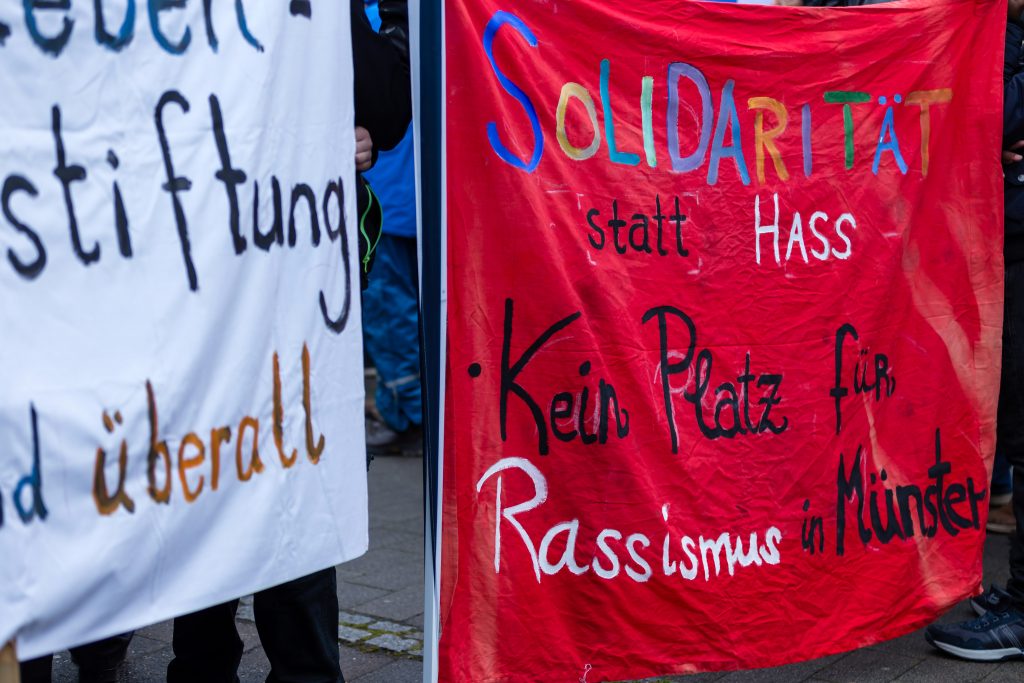 stiftung
überall
SOLIDARITÄT
statt HASS
Kein Platz für
Rassismus in Münster